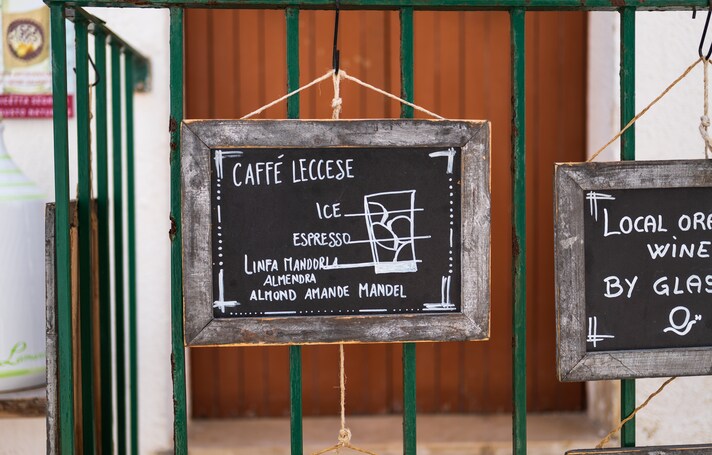 CAFFÉ LECCESE
ICE
ESPRESSO
LINFA MANDORLA
ALMENDRA
ALMOND AMANDE MANDEL
LOCAL
WINE
BY